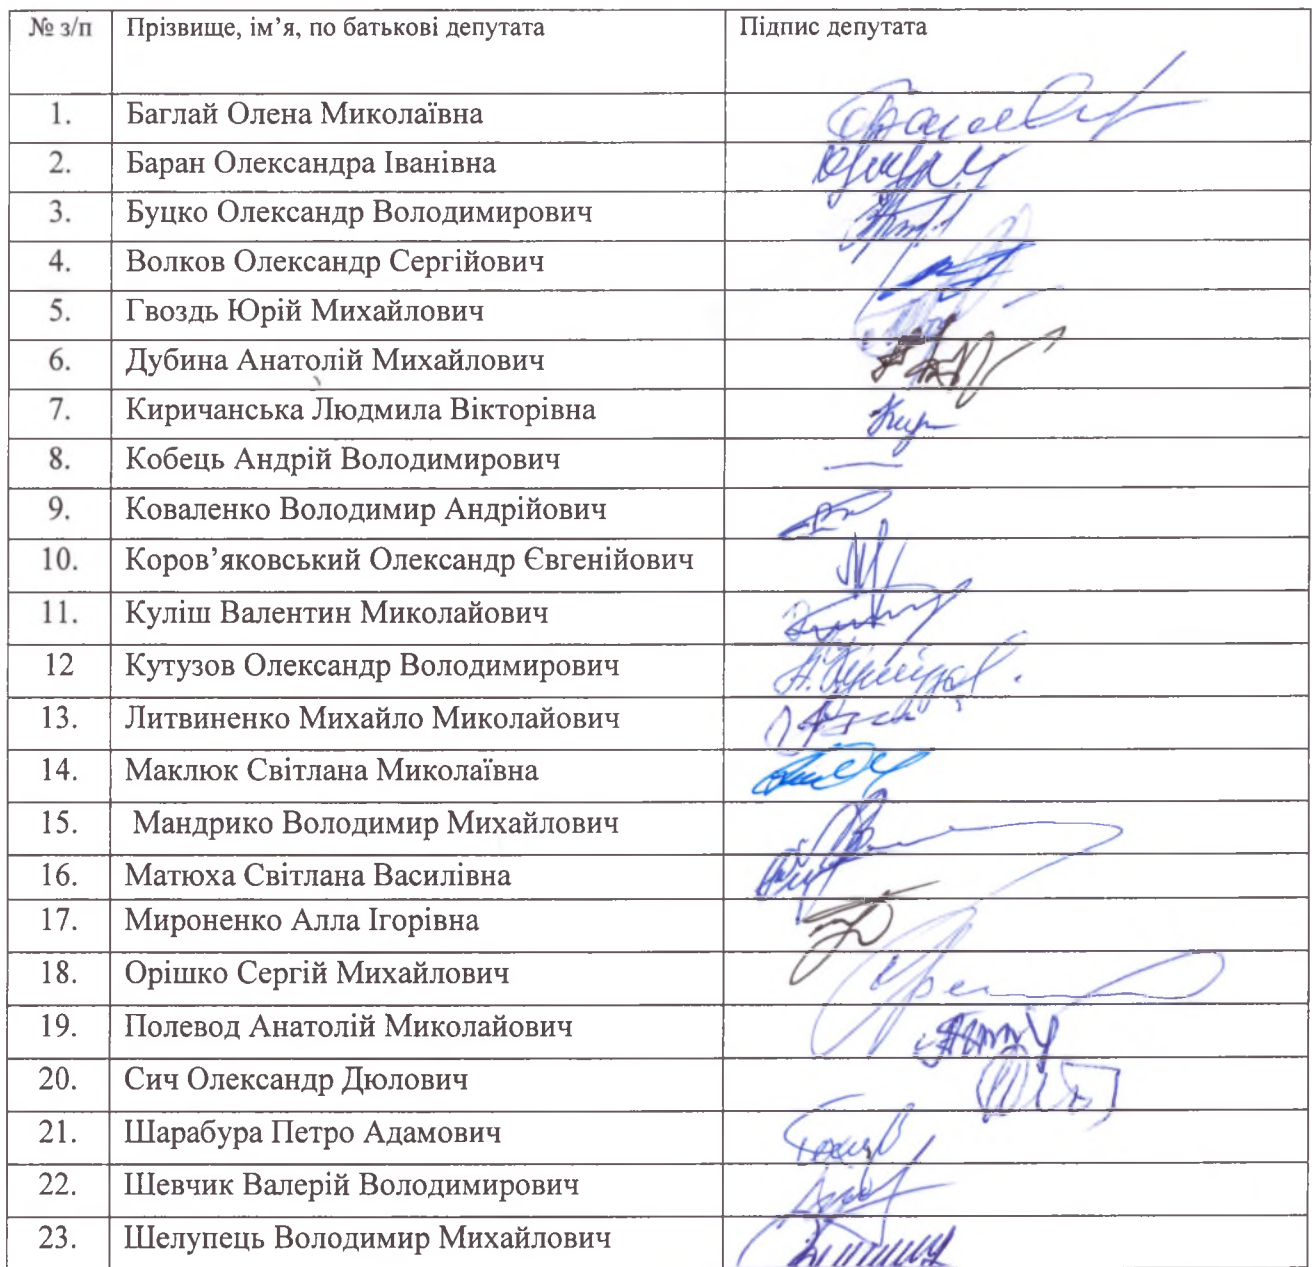 № з/п Прізвище, ім’я, по батькові депутата Підпис депутата
1. Баглай Олена Миколаївна
2. Баран Олександра Іванівна
3. Буцко Олександр Володимирович
4. Волков Олександр Сергійович
5. Гвоздь Юрій Михайлович
6. Дубина Анатолій Михайлович
7. Киричанська Людмила Вікторівна
8. Кобець Андрій Володимирович
9. Коваленко Володимир Андрійович
10. Коров’яковський Олександр Євгенійович
11. Куліш Валентин Миколайович
12 Кутузов Олександр Володимирович
13. Литвиненко Михайло Миколайович
14. Маклюк Світлана Миколаївна
15. Мандрико Володимир Михайлович
16. Матюха Світлана Василівна
17. Мироненко Алла Ігорівна
18. Орішко Сергій Михайлович
19. Полевод Анатолій Миколайович
20. Сич Олександр Дюлович
21. Шарабура Петро Адамович
22. Шевчик Валерій Володимирович
23. Шелупець Володимир Михайлович